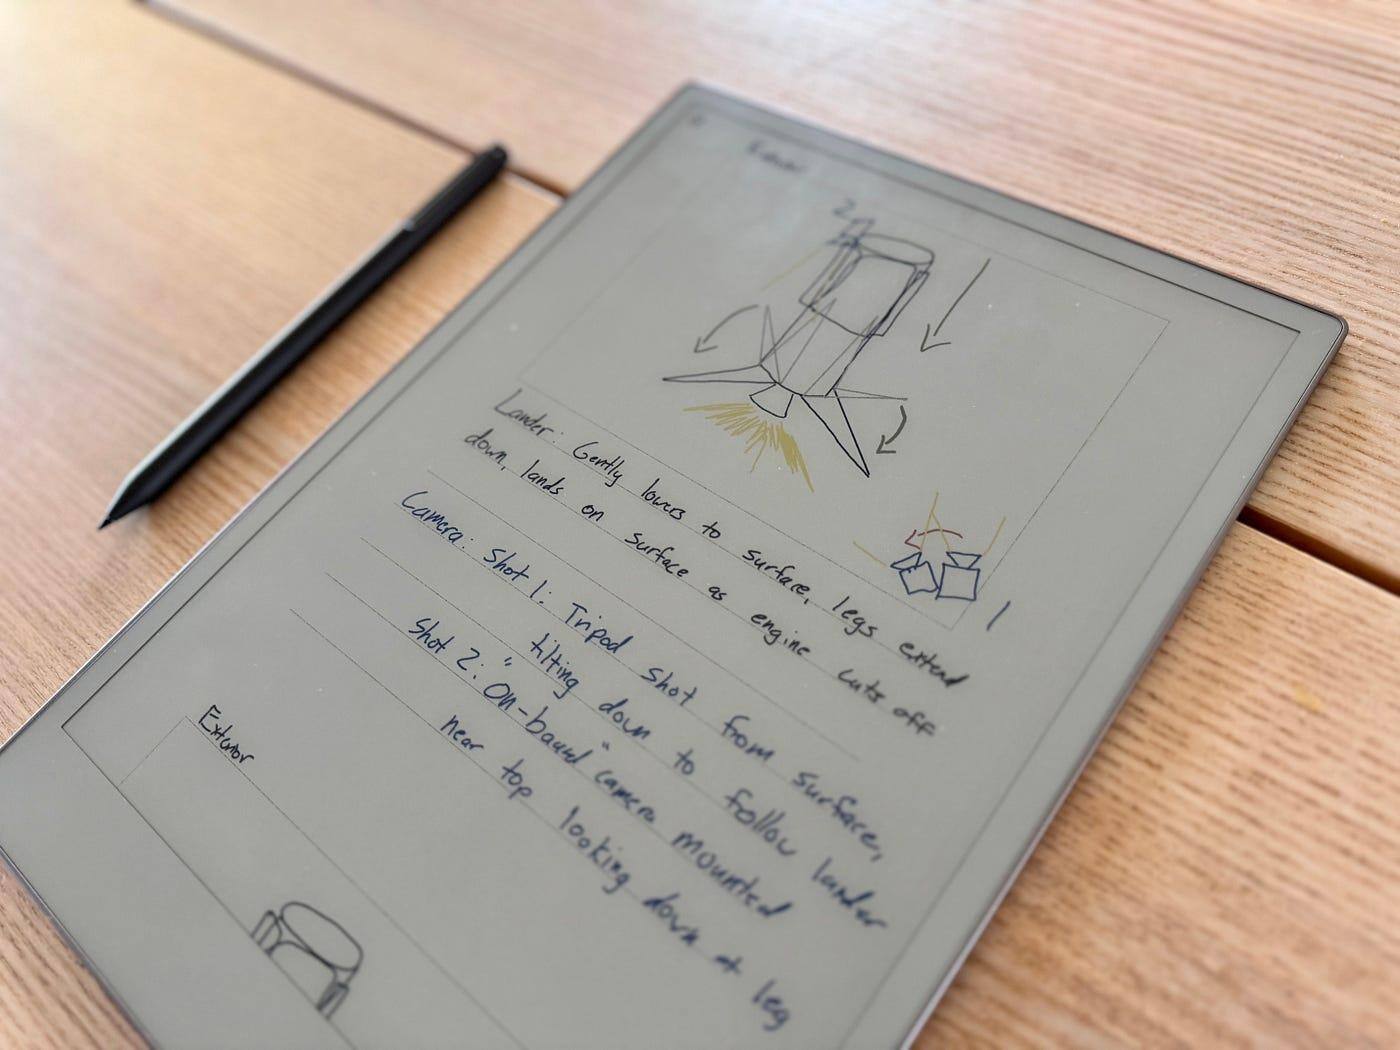 Exterior
2
1
Lander: Gently lowers to surface, legs extend
down, lands on surface as engine cuts off
Camera: Shot 1: Tripod shot from surface,
" tilting down to follow lander
Shot 2: "On-board" camera mounted
near top looking down at leg
Exterior